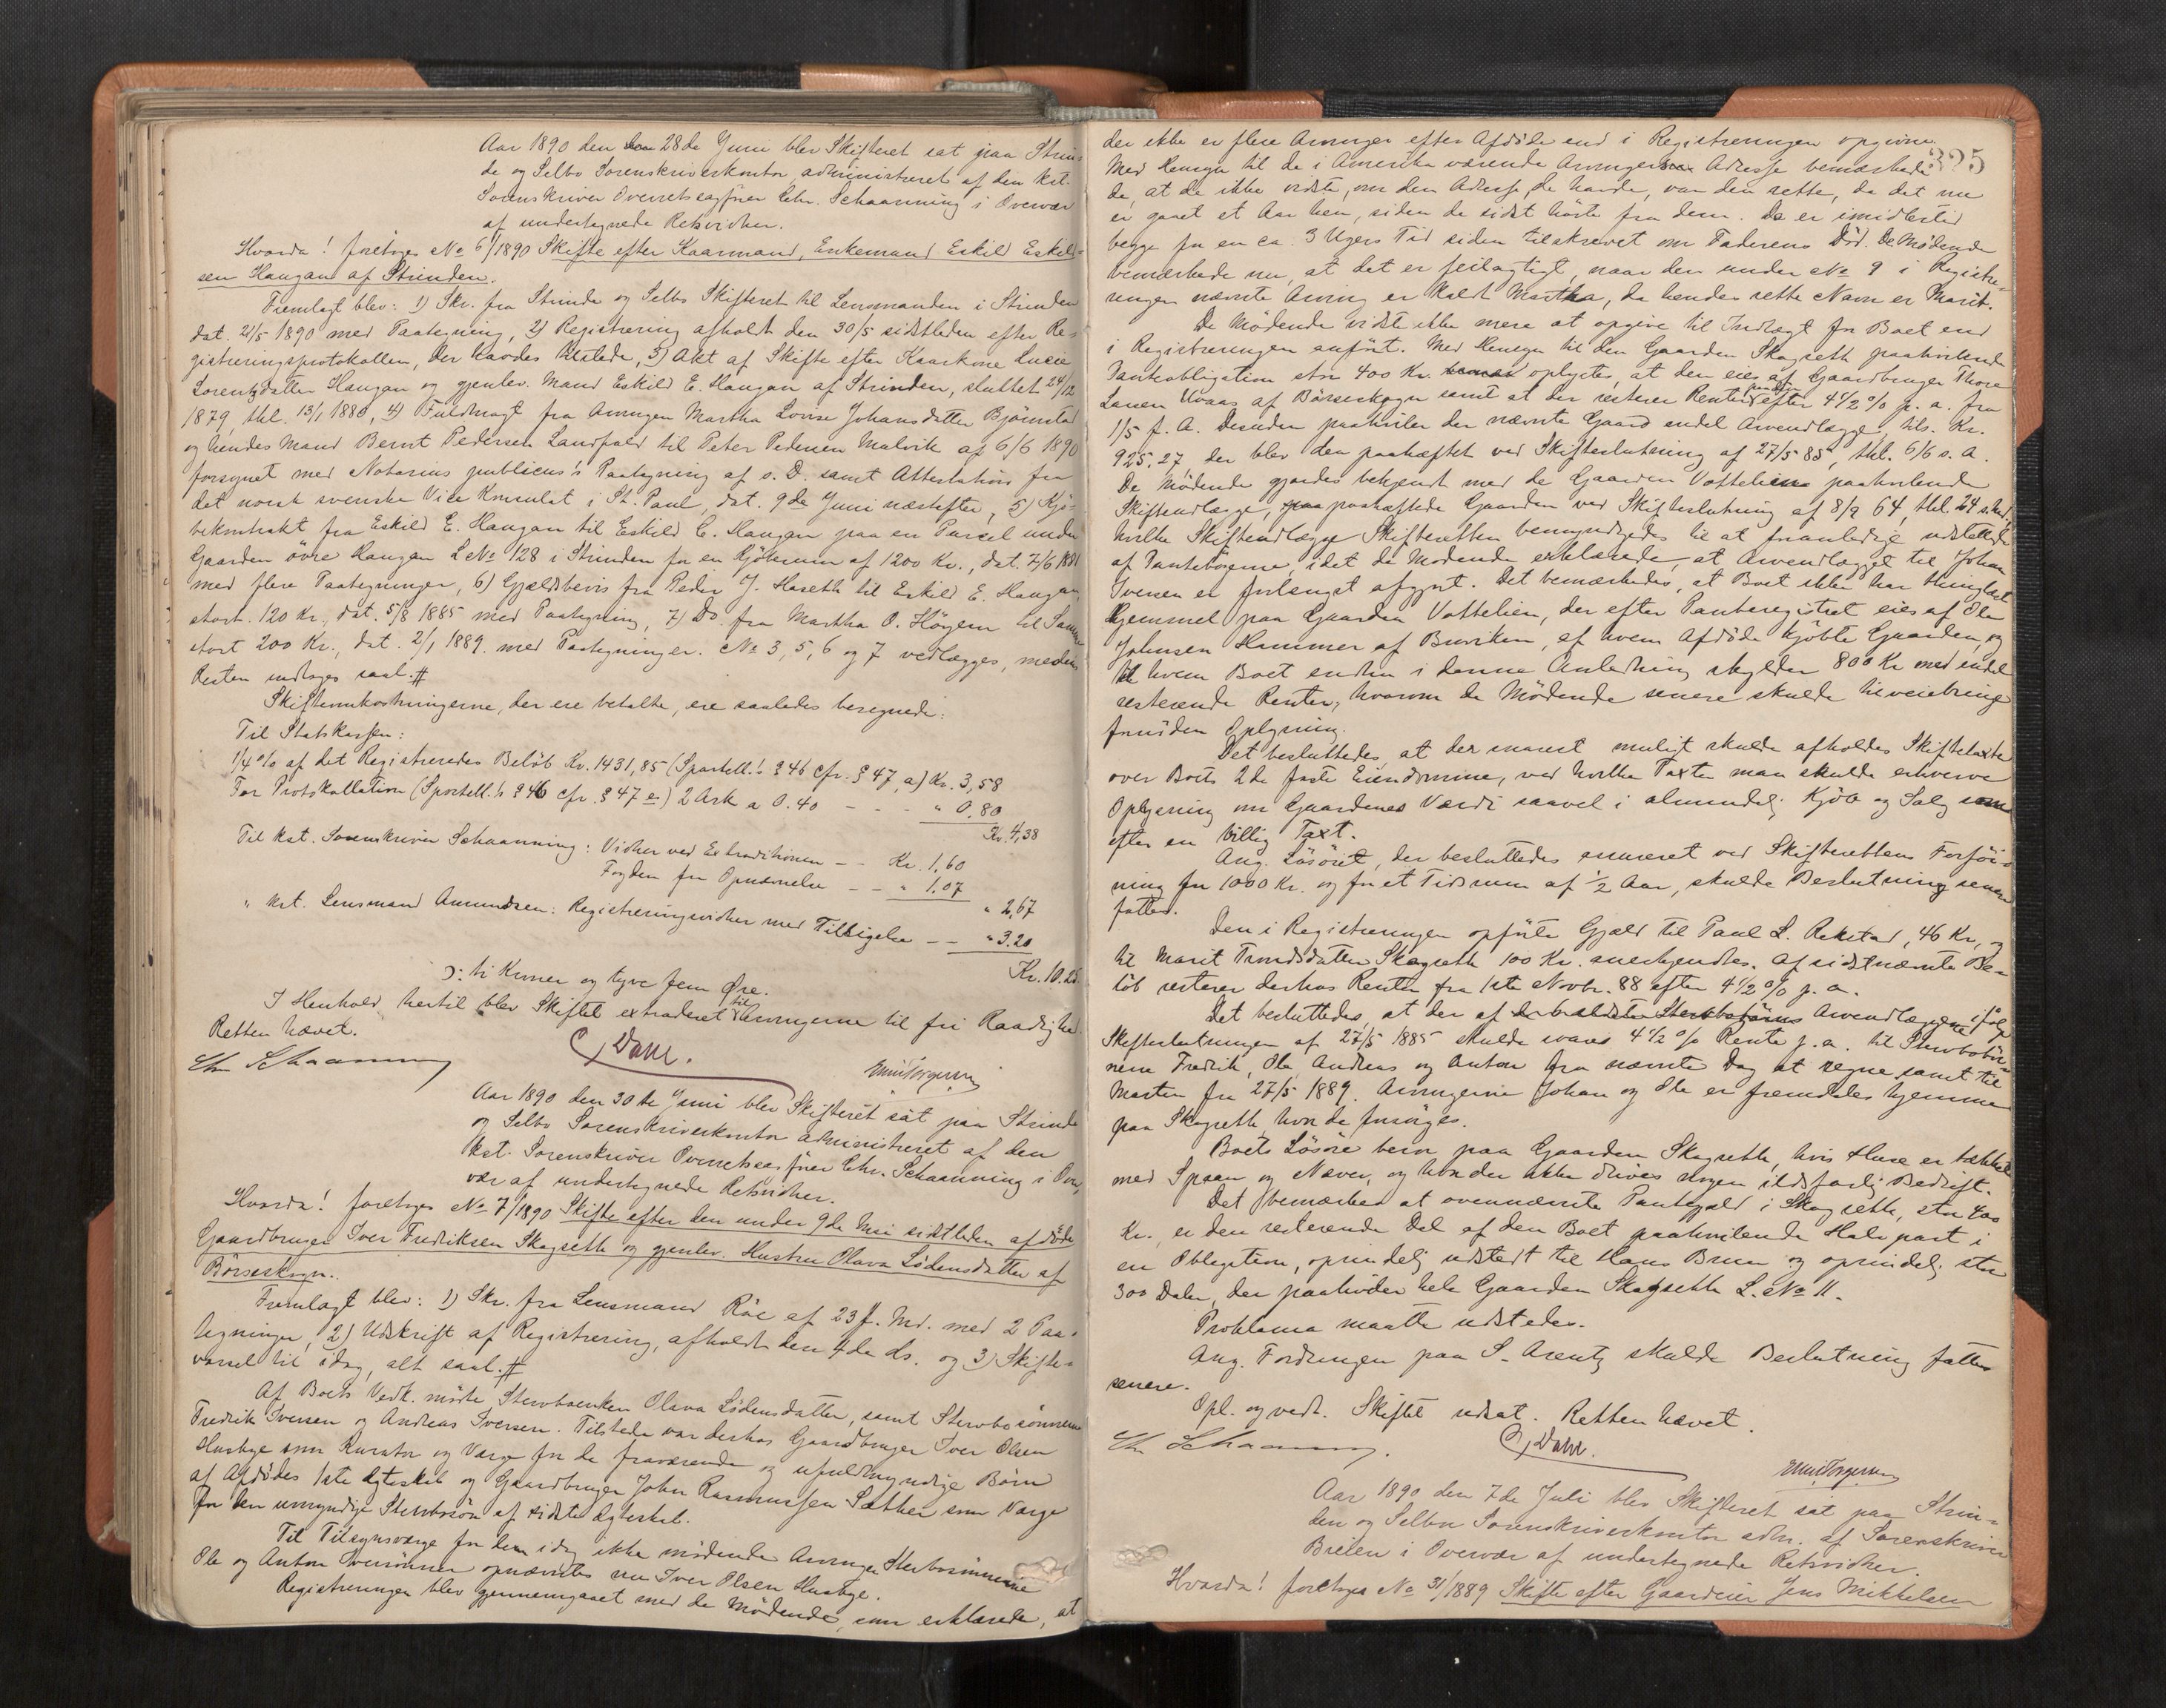 Aar 1890 den 28de Juni blev Skifteret sat paa Strin-
de og Selbo Sorenskriverkontor, administreret af den kst.
Sorenskriver Overretssagfører Chr. Schaanning i Overvær
af undertegnede Retsvidner.
Hvorda! foretoges No 6/1890 Skifte efter Kaarmand, Enkemand Eskild Eskild-
sen Haugan af Strinden.
Fremlagt blev: 1) Skr. fra Strinde og Selbo Skifteret til Lensmanden i Strinden
dat. 21/5 1890 med Paategning, 2) Registrering afholdt den 30/5 sidstleden efter Re-
gistreringsprotokollen, der havdes tilstede, 3) Akt af Skifte efter Kaarkone Lucie
Lorentzdatter Haugan og gjenlev. Mand Eskild E. Haugan af Strinden, sluttet 24/12
1879, thl. 13/1 1880, 4) Fuldmagt fra Arvingen Martha Lovise Johansdatter Bjørnstad
og hendes Mand Bernt Pedersen Landfald til Peter Pedersen Malvik af 6/6 1890
forsynet med Notarius publicus's Paategning af s. D. samt Attestation fra
det norsk svenske Vice Konsulat i St. Paul, dat. 9de Juni næstefter, 5) Kjø-
bekontrakt fra Eskild E. Haugan til Eskild C. Haugan paa en Parcel under
Gaarden øvre Haugan L.No 128 i Strinden for en Kjøbesum af 1200 Kr., dat. 7/6 1881
med flere Paategninger, 6) Gjældsbevis fra Peder J. Haseth til Eskild E. Haugan
stort 120 Kr., dat. 5/8 1885 med Paategning, 7) Do. fra Martha O. Høyem til Samme
stort 200 Kr., dat. 2/1 1889 med Paategninger. No 3, 5, 6 og 7 vedlægges, medens
Resten indtages saal. #
Skifteomkostningerne, der ere betalte, ere saaledes beregnede:
Til Statskassen:
1/4 % af det Registreredes Beløb Kr. 1431,85 (Sportell.'s § 46 cfr. § 47, a) Kr. 3,58
For Protokollation (Sportell.'s § 46 cfr. § 47 e) 2 Ark a 0.40 - - - " 0,80
Kr. 4,38
Til kst. Sorenskriver Schaanning: Vidner ved Extraditionen - - Kr. 1,60
Fogden for Opnævnelse - - " 1.07
" 2,67
" kst. Lensmand Amundsen: Registreringsvidner med Tilsigelse - - " 3.20
Kr. 10.25
ɔ: ti Kroner og tyve fem Øre.
I Henhold hertil blev Skiftet extraderet til Arvingerne til fri Raadighed.
Retten hævet.
Chr Schaanning
C. Dahl.
Aar 1890 den 30te Juni blev Skifteret sat paa Strinde
og Selbo Sorenskriverkontor administreret af den
kst. Sorenskriver Overretssagfører Chr. Schaanning i Over-
vær af undertegnede Retsvidner.
Hvorda! foretoges No 7/1890 Skifte efter den under 9de Mai sidstleden afdøde
Gaardbruger Iver Fredriksen Skogseth og gjenlev. Hustru Olava Lødensdatter af
Børseskogn.
Fremlagt blev: 1) Skr. fra Lensmand Röe af 23 f. Md. med 2 Paa-
tegninger, 2) Udskrift af Registrering, afholdt den 4de ds. og 3) Skifte-
varsel til idag, alt saal. #
Af Boets Vedk. mødte Stervboenken Olava Lødensdatter, samt Stervbosønnerne
Fredrik Iversen og Andreas Iversen. Tilstede var derhos Gaardbruger Iver Olsen
Husbye som Kurator og Værge for de fraværende og ufuldmyndige Børn
af Afdødes 1ste Ægteskab og Gaardbruger John Rasmussen Sæther som Værge
for den umyndige Stervbosøn af sidste Ægteskab.
Til Tilsynsværge for dem idag ikke mødende Arvinger Stervbosønnerne
Ole og Anton Iversønner opnævntes nu Iver Olsen Husbye.
Registreringen blev gjennemgaaet med de Mødende, som erklærede, at
der ikke er flere Arvinger efter Afdøde end i Registreringen opgivne.
325
Med Hensyn til de i Amerika værende Arvingers Adresse bemærkede
de, at de ikke vidste, om den Adresse, de havde, var den rette, da det nu
er gaaet et Aar hen, siden de sidst hørte fra dem. De er imidlertid
begge for en ca. 3 Ugers Tid siden tilskrevet om Faderens Død. De Mødende
bemærkede nu, at det er feilagtigt, naar den under No 9 i Registre-
ringen nævnte Arving er kaldt Martha, da hendes rette Navn er Marit.
De Mødende vidste ikke mere at opgive til Indtægt for Boet end
i Registreringen anført. Med Hensyn til den Gaarden Skogseth paahvilende
Panteobligation stor 400 Kr. oplystes, at den eies af Gaardbruger Thore
Larsen Uvaas af Børseskogn samt at der resterer Renter efter 4 1/2 % p. a. fra
1/5 f. A. Desuden paahviler der nævnte Gaard endel Arveudlægge, tils. Kr.
925.27, der blev den paahæftet ved Skifteslutning af 27/5 85, thl. 6/6 s. A.
De Mødende gjordes bekjendt med de Gaarden Vottelien paahvilende
Skifteudlægge, paahæftede Gaarden ved Skifteslutning af 8/9 64, thl. 24 s. Md.,
hvilke Skifteudlægge Skifteretten bemyndigedes til at foranledige udslettede
af Pantebøgerne, idet de Mødende erklærede, at Arveudlægget til Johan
Iversen er forlængst afgjort. Det bemærkedes, at Boet ikke har thinglæst
Hjemmel paa Gaarden Vottelien, der efter Panteregistret eies af Ole
Johnsen Hammer af Buviken, af hvem Afdøde kjøbte Gaarden, og
til hvem Boet endnu i denne Anledning skylder 800 Kr. med endel
resterende Renter, hvorom de Mødende senere skulde tilveiebringe
fornøden Oplysning.
Det besluttedes, at der snarest muligt skulde afholdes Skiftetaxt
over Boets 2de faste Eiendomme, ved hvilke Taxter man skulde erhverve
Oplysning om Gaardenes Værdi saavel i almindelig Kjøb og Salg som
efter en billig Taxt.
Ang. Løsøret, der besluttedes assureret ved Skifterettens Forføi-
ning for 1000 Kr. og for et Tidsrum af 1/2 Aar, skulde Beslutning senere
fattes.
Den i Registreringen opførte Gjæld til Paul L. Rekstad, 46 Kr., og
til Marit Trondsdatter Skogseth 100 Kr. anerkjendtes. Af sidstnævnte Be-
løb resterer derhos Renter fra 1ste Novbr. 88 efter 4 1/2 % p. a.
Det besluttedes, at der af Arveudlæggene ifølge
Skifteslutningen af 27/5 1885 skulde svares 4 1/2 % Rente p. a. til Stervbobør-
nene Fredrik, Ole, Andreas og Anton fra nævnte Dag at regne samt til
Morten fra 27/5 1889. Arvingerne Johan og Ole er fremdeles hjemme
paa Skogseth, hvor de forsørges.
Boets Løsøre beror paa Gaarden Skogseth, hvis Huse er tækkede
med Spaan og Næver, og hvor der ikke drives nogen ildsfarlig Bedrift.
Det bemærkes at ovennævnte Pantegjæld i Skogseth, stor 400
Kr., er den resterende Del af den Boet paahvilende Halvpart i
en Obligation, oprindelig udstedt til Hans Bruun og oprindelig stor
300 Daler, der paahviler hele Gaarden Skogseth L. No 11.
Proklama maatte udstedes.
Ang. Fordringen paa S. Arentz skulde Beslutning fattes
senere.
Opl. og vedt. Skiftet udsat. Retten hævet.
Chr Schaanning.
C. Dahl.
Aar 1890 den 7de Juli blev Skifteret sat paa Strin-
den og Selbu Sorenskriverkontor adm. af Sorenskriver
i Overvær af undertegnede Retsvidner.
Hvorda! foretoges No 31/1889 Skifte efter Gaardeier Jens Mikkelsen